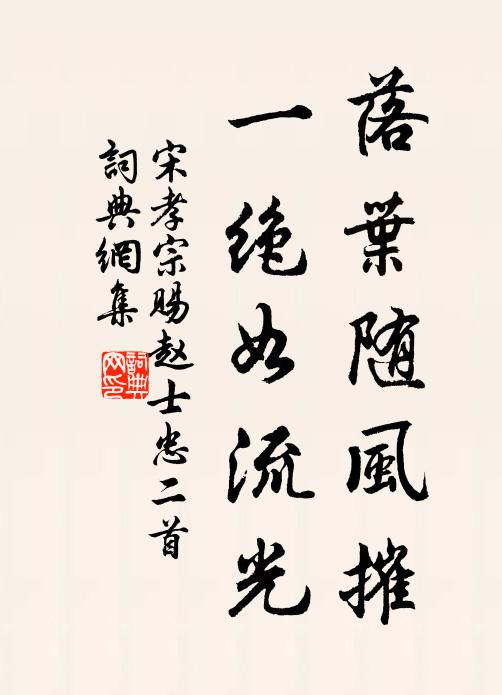 落葉随風摧
一绝如流光
宋孝宗賜赵士忠二首
詞典網集
詞典网印